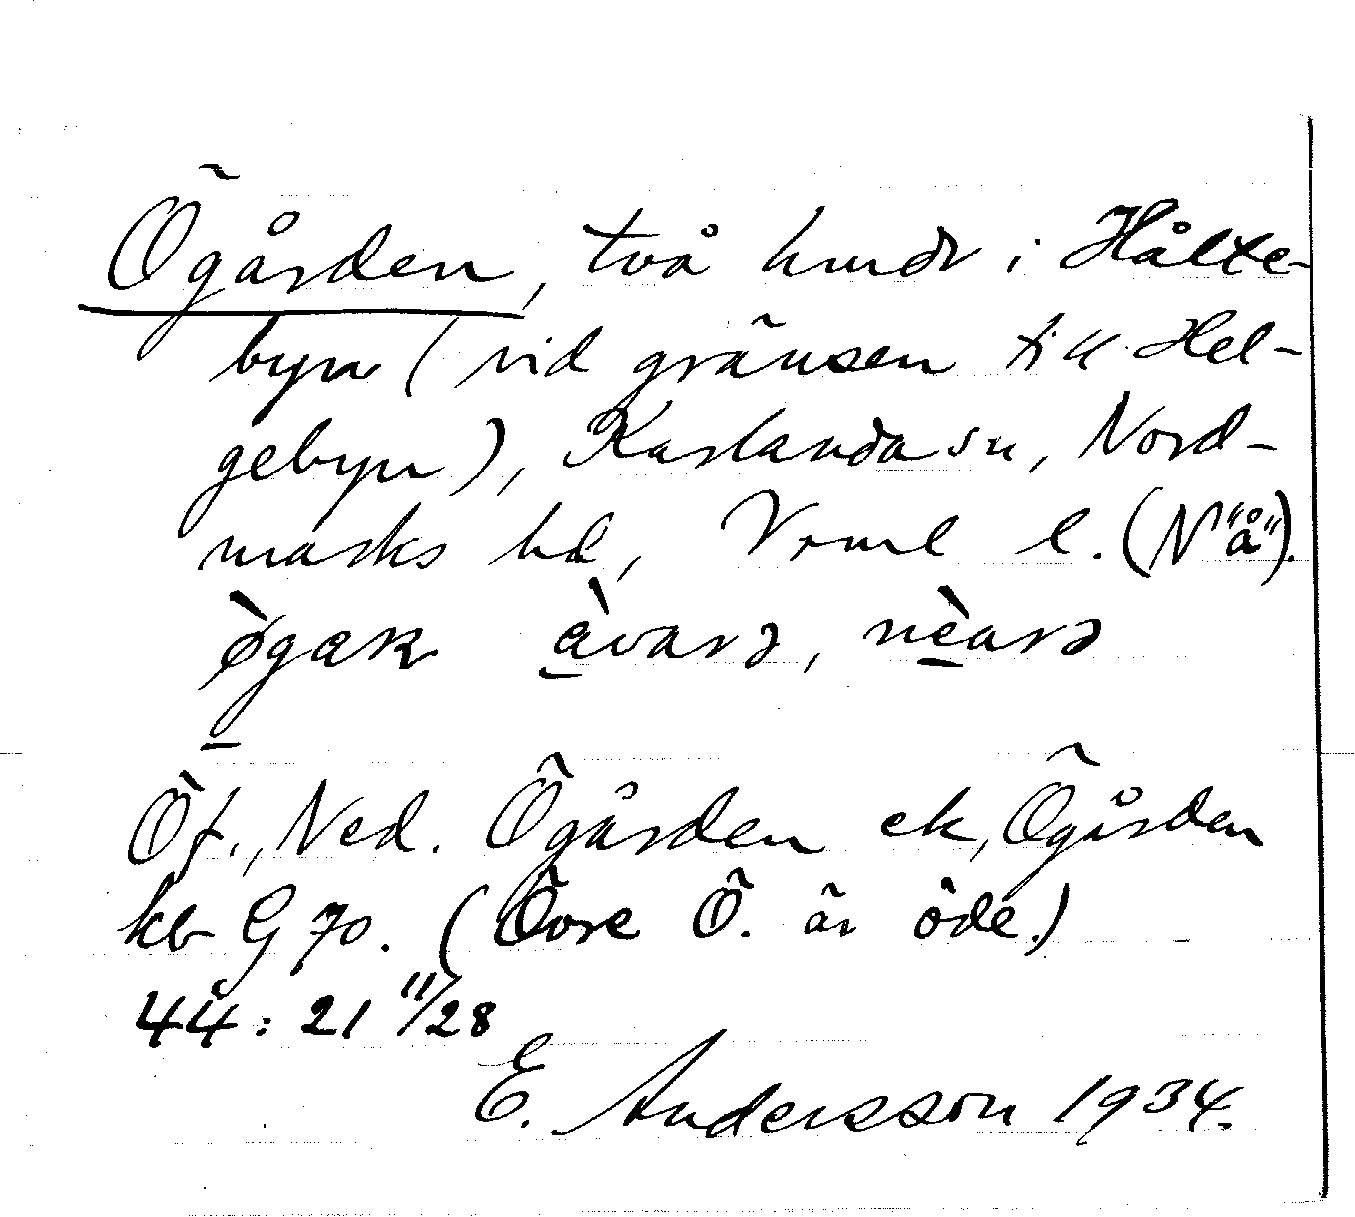 Ögården, två hmdr i Hålte-
byn (vid gränsen till Hel-
gebyn), Karlanda sn, Nord-
marks hd, Vrml l. (N"å").
øgaƚn àvarə, nèarə
Öf., Ned. Ögården ek, Ögården
kb G 70. (Övre Ö. är öde.)
44: 21 11/28
E. Andersson 1934.